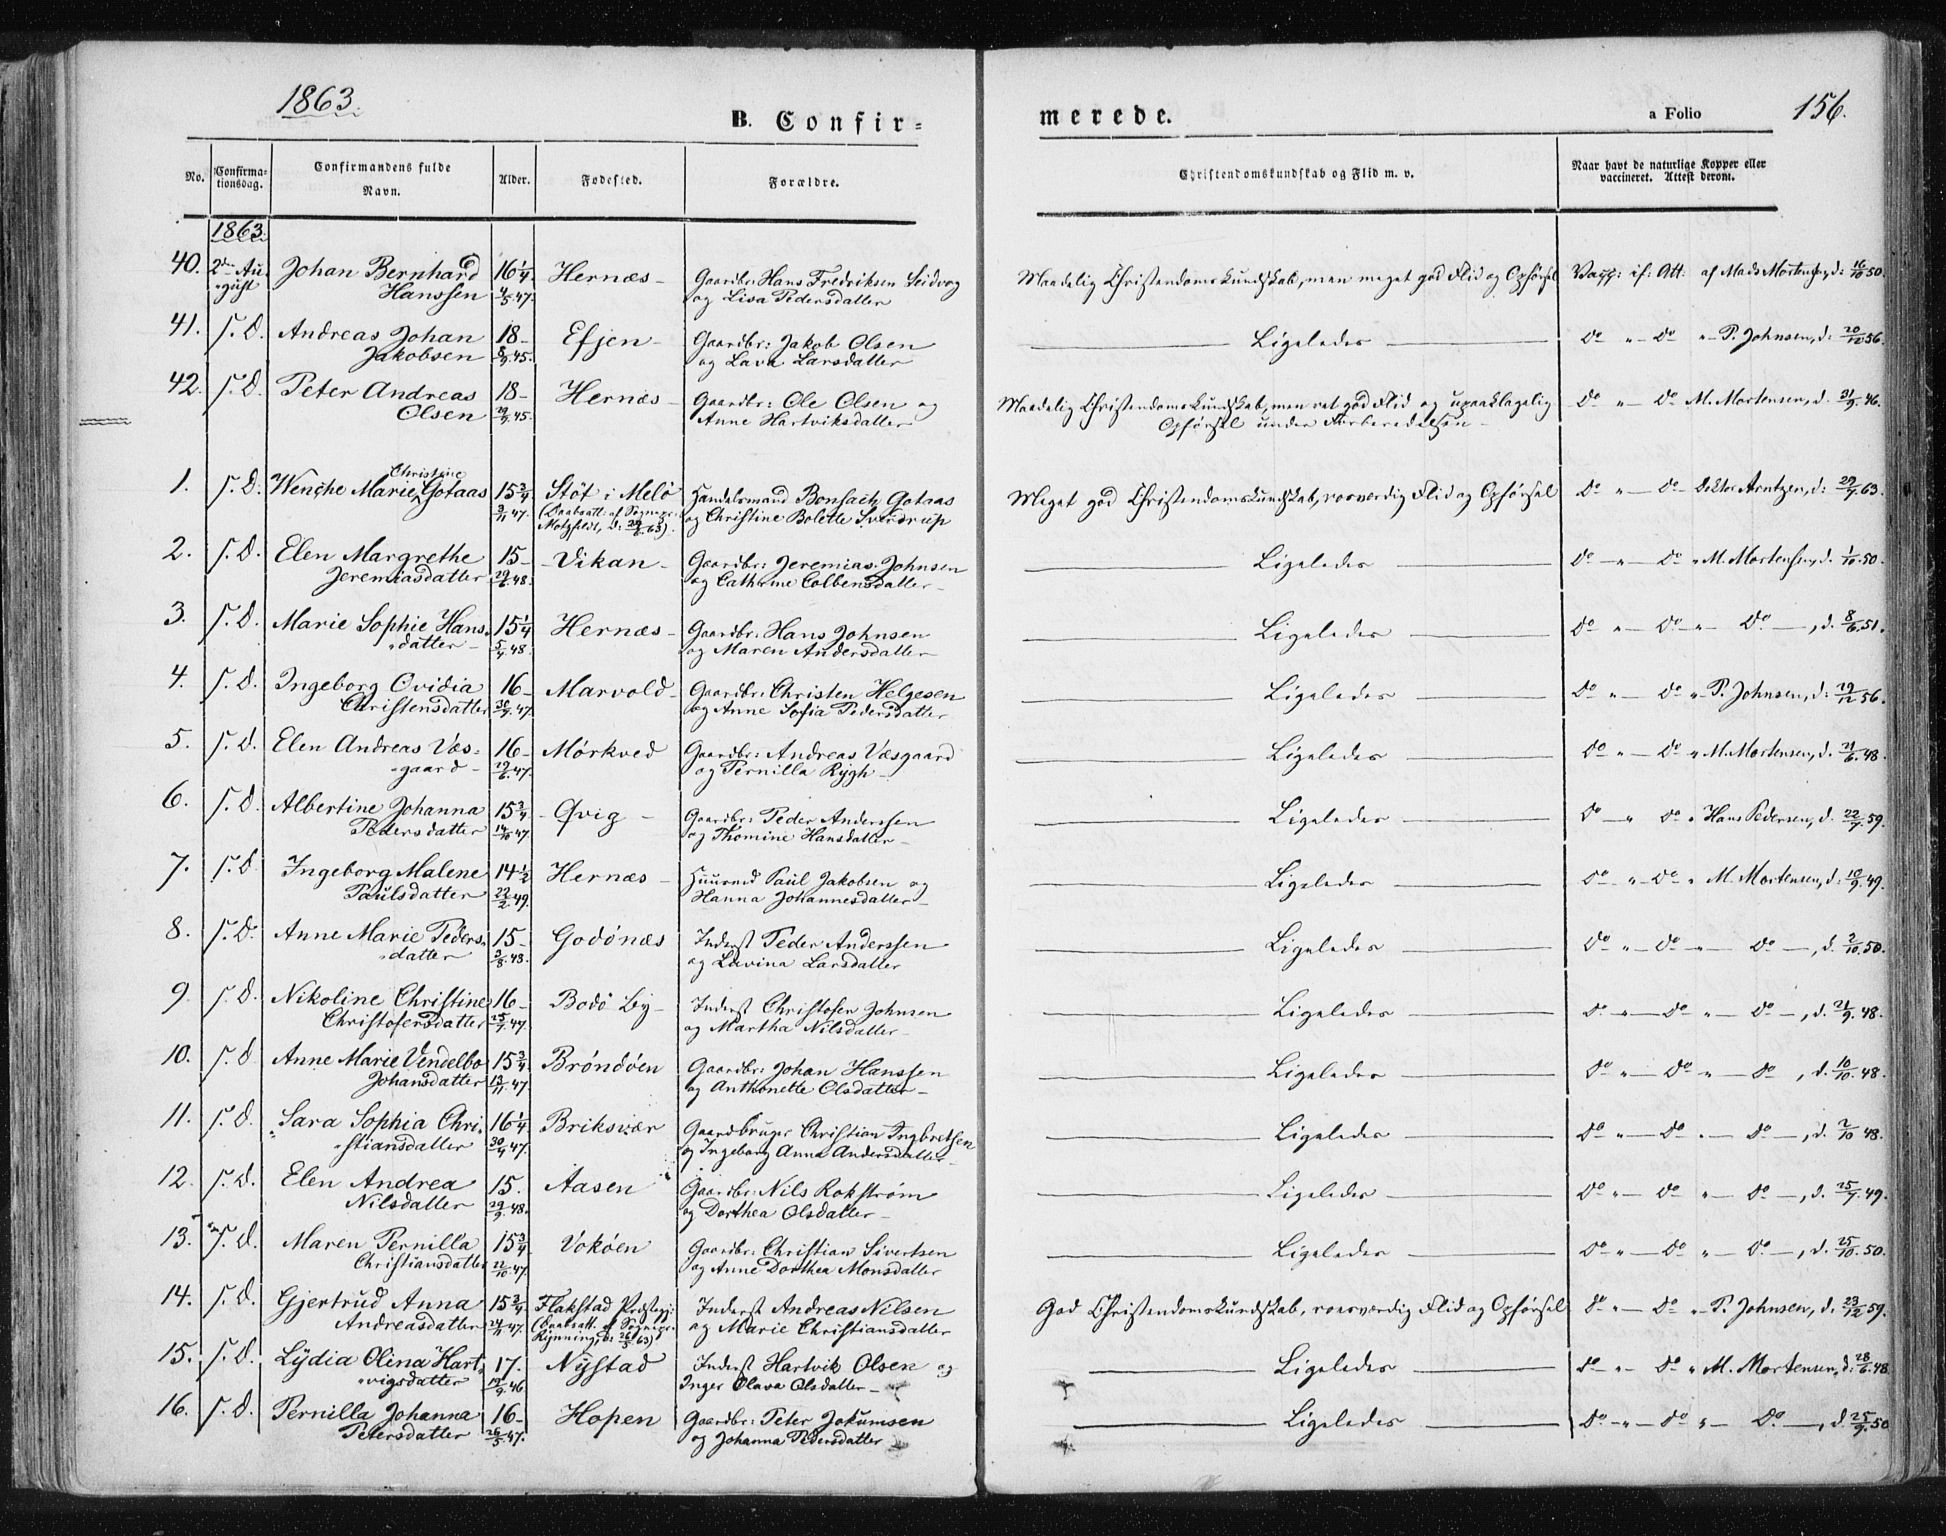 1863.
B. Confir-
merede.
a Folio
156.
No.
Confirmationsdag.
Confirmandens fulde Navn.
Alder.
Fødested.
Forældre.
Christendomskundskab og Flid m. v.
Naar havt de naturlige Kopper eller vaccineret. Attest derom.
1863.
40. 2den Au- Johan Bernhard 16 1/4 Hernæs - Gaardbr: Hans Fredriksen Seidvog Maadelig Christendomskundskab, men meget god Flid og Opførsel Vacc: if: Att: af Mads Mortensen, d: 16/10 50.
"gust Hanssen 4/5 47. og Lisa Pedersdatter
41. S. D. Andreas Johan 18- Efjen - Gaardbr: Jakob Olsen Ligeledes do " - do " P. Johnsen, d: 20/12 56.
Jakobsen 8/9 45. og Lava Larsdatter
42. S. D. Peter Andreas 18- Hernæs - Gaardbr: Ole Olsen og Maadelig Christendomskundskab, men ret god Flid og upaaklagelig do " - do M. Mortensen, d. 21/9 46.
Olsen 29/9 45. Anne Hartviksdatter Opførsel under Forberedelsen -
Christine
1. S. D. Wenche Marie Gotaas 15 3/4 Støt i Melö Handelsmand Bonsach Gotaas Meget god Christendomskundskab, rosværdig Flid og Opførsel do " - do Doktor Arntzen, d: 29/7 63.
3/11 47. (Daabsatt. af Sognepr: og Christine Bolette Sverdrup
Motzfeldt, d: 29/6 63).
2. S. D. Elen Margrethe 15- - Vikan - Gaardbr: Jeremias Johnsen Ligeledes do " - do " M. Mortensen, d. 1/10 50.
Jeremiasdatter 29/6 48. og Cathrine Colbensdatter -
3. S. D. Marie Sophie Hans- 15 1/4 Hernæs - Gaardbr: Hans Johnsen Ligeledes do " - do " - do -, d. 8/6 51.
"datter - 5/4 48. og Maren Andersdatter -
4. S. D. Ingeborg Ovidia 16- Marvold - Gaardbr: Christen Helgesen Ligeledes do " - do " P. Johnsen, d: 29/12 56.
Christensdatter 30/7 47. og Anne Sofia Pedersdatter
5. S. D. Elen Andreas Væs- 16- Mørkved Gaardbr: Andreas Væsgaard Ligeledes do " - do " M. Mortensen, d. 21/6 48.
"gaard - 29/6 47. og Pernilla Rygh -
6. S. D. Albertine Johanna 15 3/4 - Qvig - Gaardbr: Peder Anderssen Ligeledes do - " do " Hans Pedersen, d. 22/7 59.
Pedersdatter 14/10 47. og Thomine Hansdatter -
7. S. D. Ingeborg Malene 14 1/2 Hernæs - Huusmd Paul Jakobsen og Ligeledes do " - do " M. Mortensen, d: 10/9 49.
Paulsdatter 22/2 49. Hanna Johannesdatter -
8. S. D. Anne Marie Peders- 15- Godönæs Inderst Peder Anderssen Ligeledes do " - do " - do -, d. 2/10 50.
"datter - 3/8 48. og Lavina Larsdatter
9. S. D. Nikoline Christine 16- Bodö By - Inderst Christofer Johnsen Ligeledes do " - do " - do -, d. 21/9 48.
Christofersdatter 25/7 47. og Martha Nilsdatter -
10. S. D. Anne Marie Vendelbo 15 3/4 Bröndöen Gaardbr: Johan Hanssen Ligeledes do " - do " - do , d. 10/10 48.
Johansdatter 13/11 47. og Anthonette Olsdatter -
11. S. D. Sara Sophia Chri- 16 1/4 Briksvær Gaardbruger Christian Ingbretsen Ligeledes do " - do " - do -, d. 2/10 48.
"stiansdatter 30/4 47. og Ingeborg Anna Andersdatter -
12. S. D. Elen Andrea 15. Aasen Gaardbr: Nils Rokström Ligeledes do " - do " - do -, d. 25/7 49.
Nilsdatter 29/9 48. og Dorthea Olsdatter -
13. S. D. Maren Pernilla 15 3/4 Vokøen Gaardbr: Christian Sivertsen Ligeledes do " - do " - do -, d. 25/10 50.
Christiansdatter 22/10 47. og Anne Dorthea Monsdatter
14. S. D. Gjertrud Anna 15 3/4 Flakstad Præstegj: Inderst Andreas Nilsen God Christendomskundskab, rosværdig Flid og Opførsel do " - do " P. Johnsen, d: 23/12 59.
Andreasdatter 24/11 47. (Daabsatt. af Sognepr. og Marie Christiansdatter
Rynning, d: 26/5 63)
15. S. D. Lydia Olina Hart- 17. Nystad Inderst Hartvik Olsen og Ligeledes do " - do " M. Mortensen, d: 28/6 48.
"vigsdatter 19/9 46. Inger Olava Olsdatter -
16. S. D. Pernilla Johanna 16- Hopen Gaardbr: Peter Jokumsen Ligeledes do " - do " - do -, d. 25/9 50
Petersdatter 26/5 47. og Johanna Pedersdatter